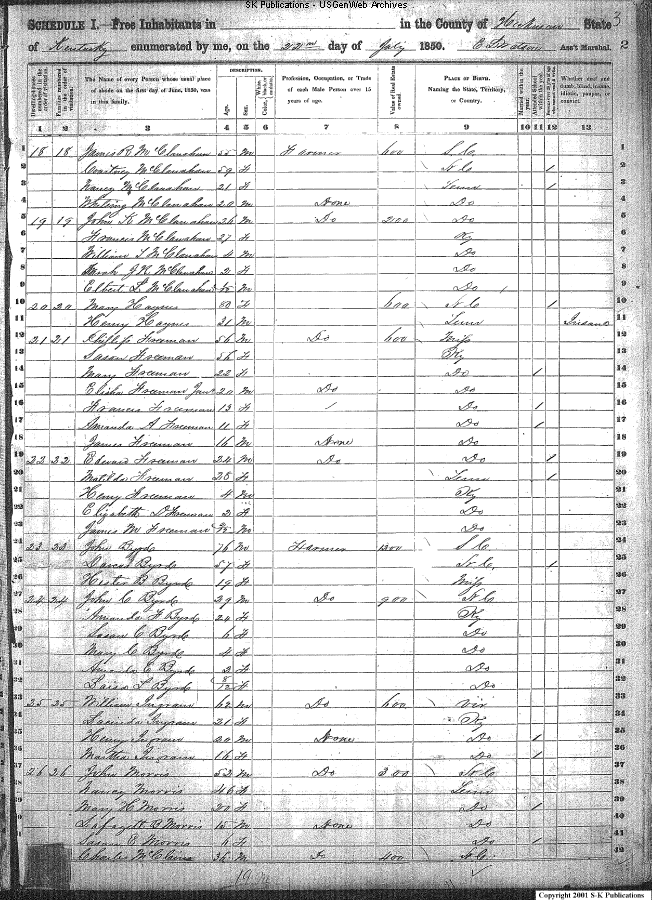 SK Publications - USGenWeb Archives
SCHEDULE I.—Free Inhabitants in in the County of Hickman State 3
of Kentucky enumerated by me, on the 22nd day of July 1850. Ass't Marshal. 2
Dwelling-houses numbered in the order of visitation.
Families numbered in the order of visitation.
The Name of every Person whose usual place of abode on the first day of June, 1850, was in this family.
DESCRIPTION.
Age.
Sex.
Color,
Profession, Occupation, or Trade of each Male Person over 15 years of age.
Value of Real Estate owned.
PLACE OF BIRTH.
Naming the State, Territory, or Country.
Married within the year.
Attended School within the year.
Whether deaf and dumb, blind, insane, idiotic, pauper, or convict.
1 2 3 4 5 6 7 8 9 10 11 12 13
1 18 18 James R McClanahan 55 M Farmer 600 S Co 1
2 McClanahan 59 F N Co 1 2
3 Nancy McClanahan 21 F Tenn 1 3
4 Whiting McClanahan 20 M None Do 4
5 19 19 John K McClanahan 26 M Do 200 Do 5
6 Francis McClanahan 27 F Ky 6
7 William S McClanahan 4 M Do 7
8 Sarah J R McClanahan 2 F Do 8
9 Elbert L McClanahan M Do 9
10 20 20 Mary Haynes 80 F 600 N Co 1 10
11 Henry Haynes 31 M Tenn Insane 11
12 21 21 Phillip Freeman 56 M Do 600 Miss 12
13 Susan Freeman 56 F Ky 13
14 Mary Freeman 22 F Do 1 14
15 Elisha Freeman Jun 20 M Do Do 15
16 Francis Freeman 13 F Do 1 16
17 Amanda A Freeman 11 F Do 1 17
18 James Freeman 16 M None Do 18
19 22 22 Edward Freeman 24 M Do Do 1 19
20 Matilda Freeman 25 F Tenn 1 20
21 Henry Freeman 4 M Ky 21
22 Elizabeth D Freeman 2 F Do 22
23 James M Freeman M Do 23
24 23 23 John Byrd 76 M Farmer 1200 S Co 24
25 Byrd 57 F N Co 1 25
26 Hester B Byrd 19 F Miss 26
27 24 24 John C Byrd 29 M Do 900 N Co 27
28 Amanda F Byrd 24 F Ky 28
29 Susan C Byrd 6 F Do 29
30 Mary C Byrd 4 F Do 30
31 Amanda E Byrd 2 F Do 31
32 Louisa L Byrd 8/12 F Do 32
33 25 25 William Ingram 62 M Do 600 Vir 33
34 Lucinda Ingram 21 F Ky 34
35 Henry Ingram 20 M None Do 1 35
36 Martha Ingram 16 F Do 1 36
37 26 26 John Morris 52 M Do 300 N Co 37
38 Nancy Morris 46 F Tenn 38
39 Mary H Morris 20 F Do 1 39
40 Lafayett B Morris 15 M None Do 40
41 Susan E Morris 6 F Do 1 41
42 Charles McClain 36 M Do 400 N C 42
19 m
Copyright 2001 S-K Publications